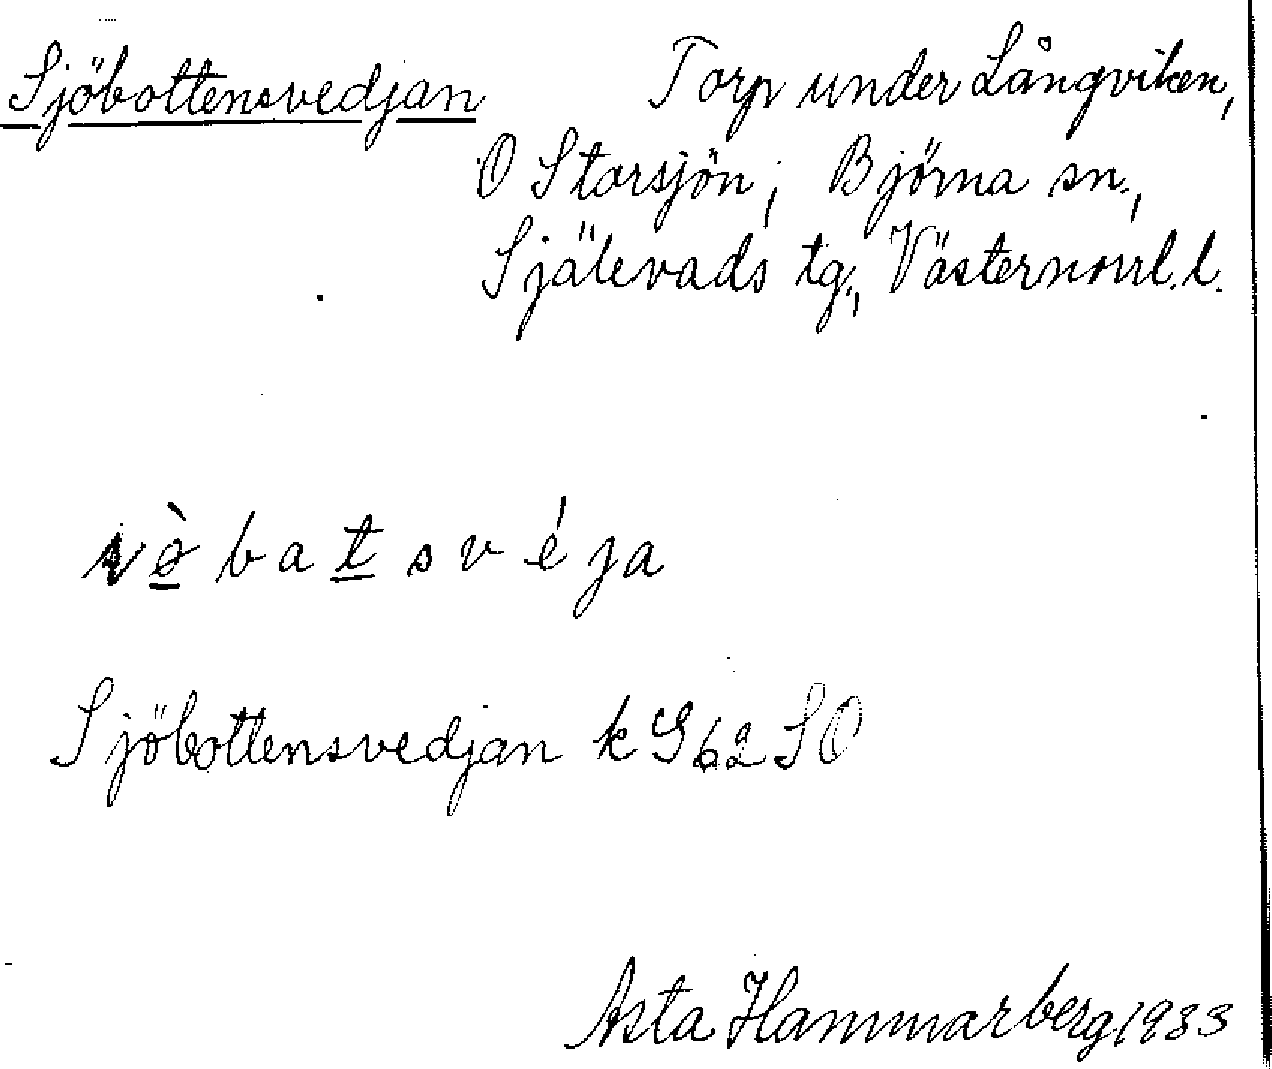 Sjöbottensvedjan Torp under Långviken,
O Storsjön; Björna sn.,
Själevads tg., Västernorrl. l.
b a t s v é ja
Sjöbottensvedjan k G62 SO
Asta Hammarberg 1933